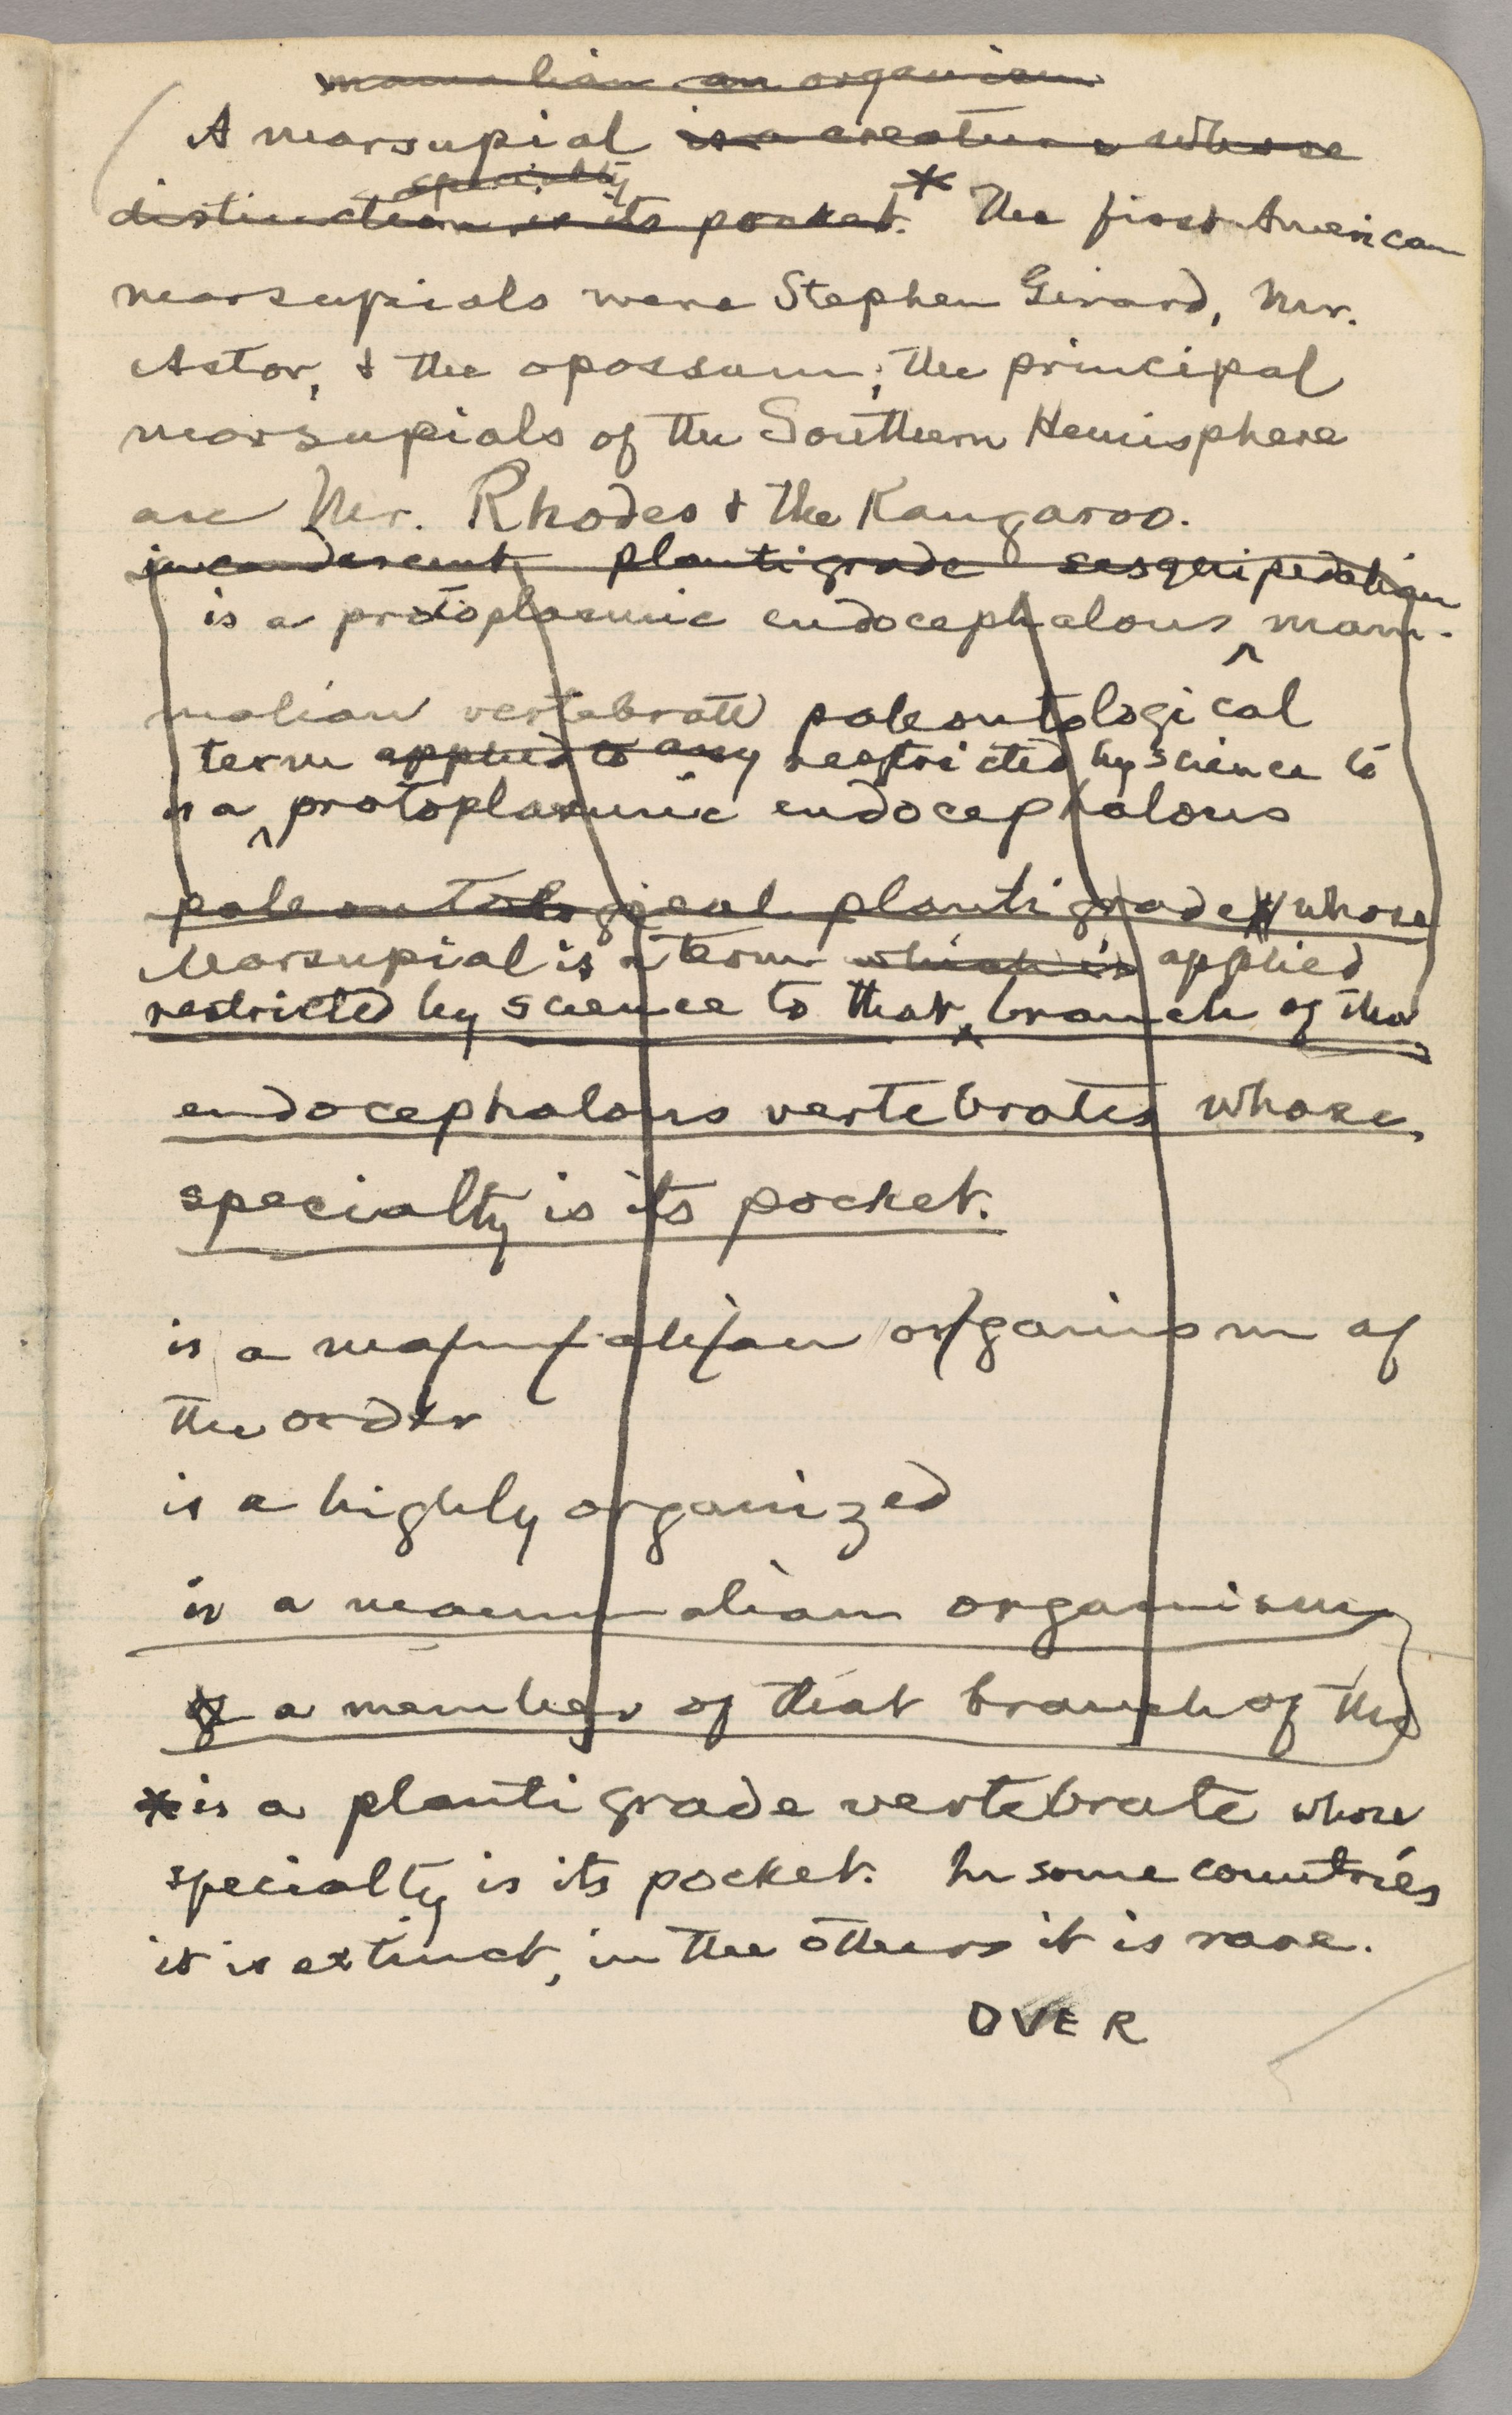 mamalian an organism
A marsupial is a creature whose
specialty
distinction is its pocket.* The first American
marsupials were Stephen Girard, Mr.
Astor, & the opossum; the principal
marsupials of the Southern Hemisphere
are Mr. Rhodes & the Kangaroo.
incandescent plantigrade sesquipedalian
is a protoplasmic endocephalous ^ mam-
malian vertebrate paleontological
term applied to any restricted by science to
is a ^ protoplasmic endocephalous
paleontological plantigrade whose
Marsupial is a term which is applied
restricted by science to that ^ branch of the
endocephalous vertebrates whose
specialty is its pocket.
is a mammalian organism of
the order
is a highly organized
is a mammalian organism
a member of that branch of the
*is a plantigrade vertebrate whose
specialty is its pocket. In some countries
it is extinct, in the others it is rare.
OVER